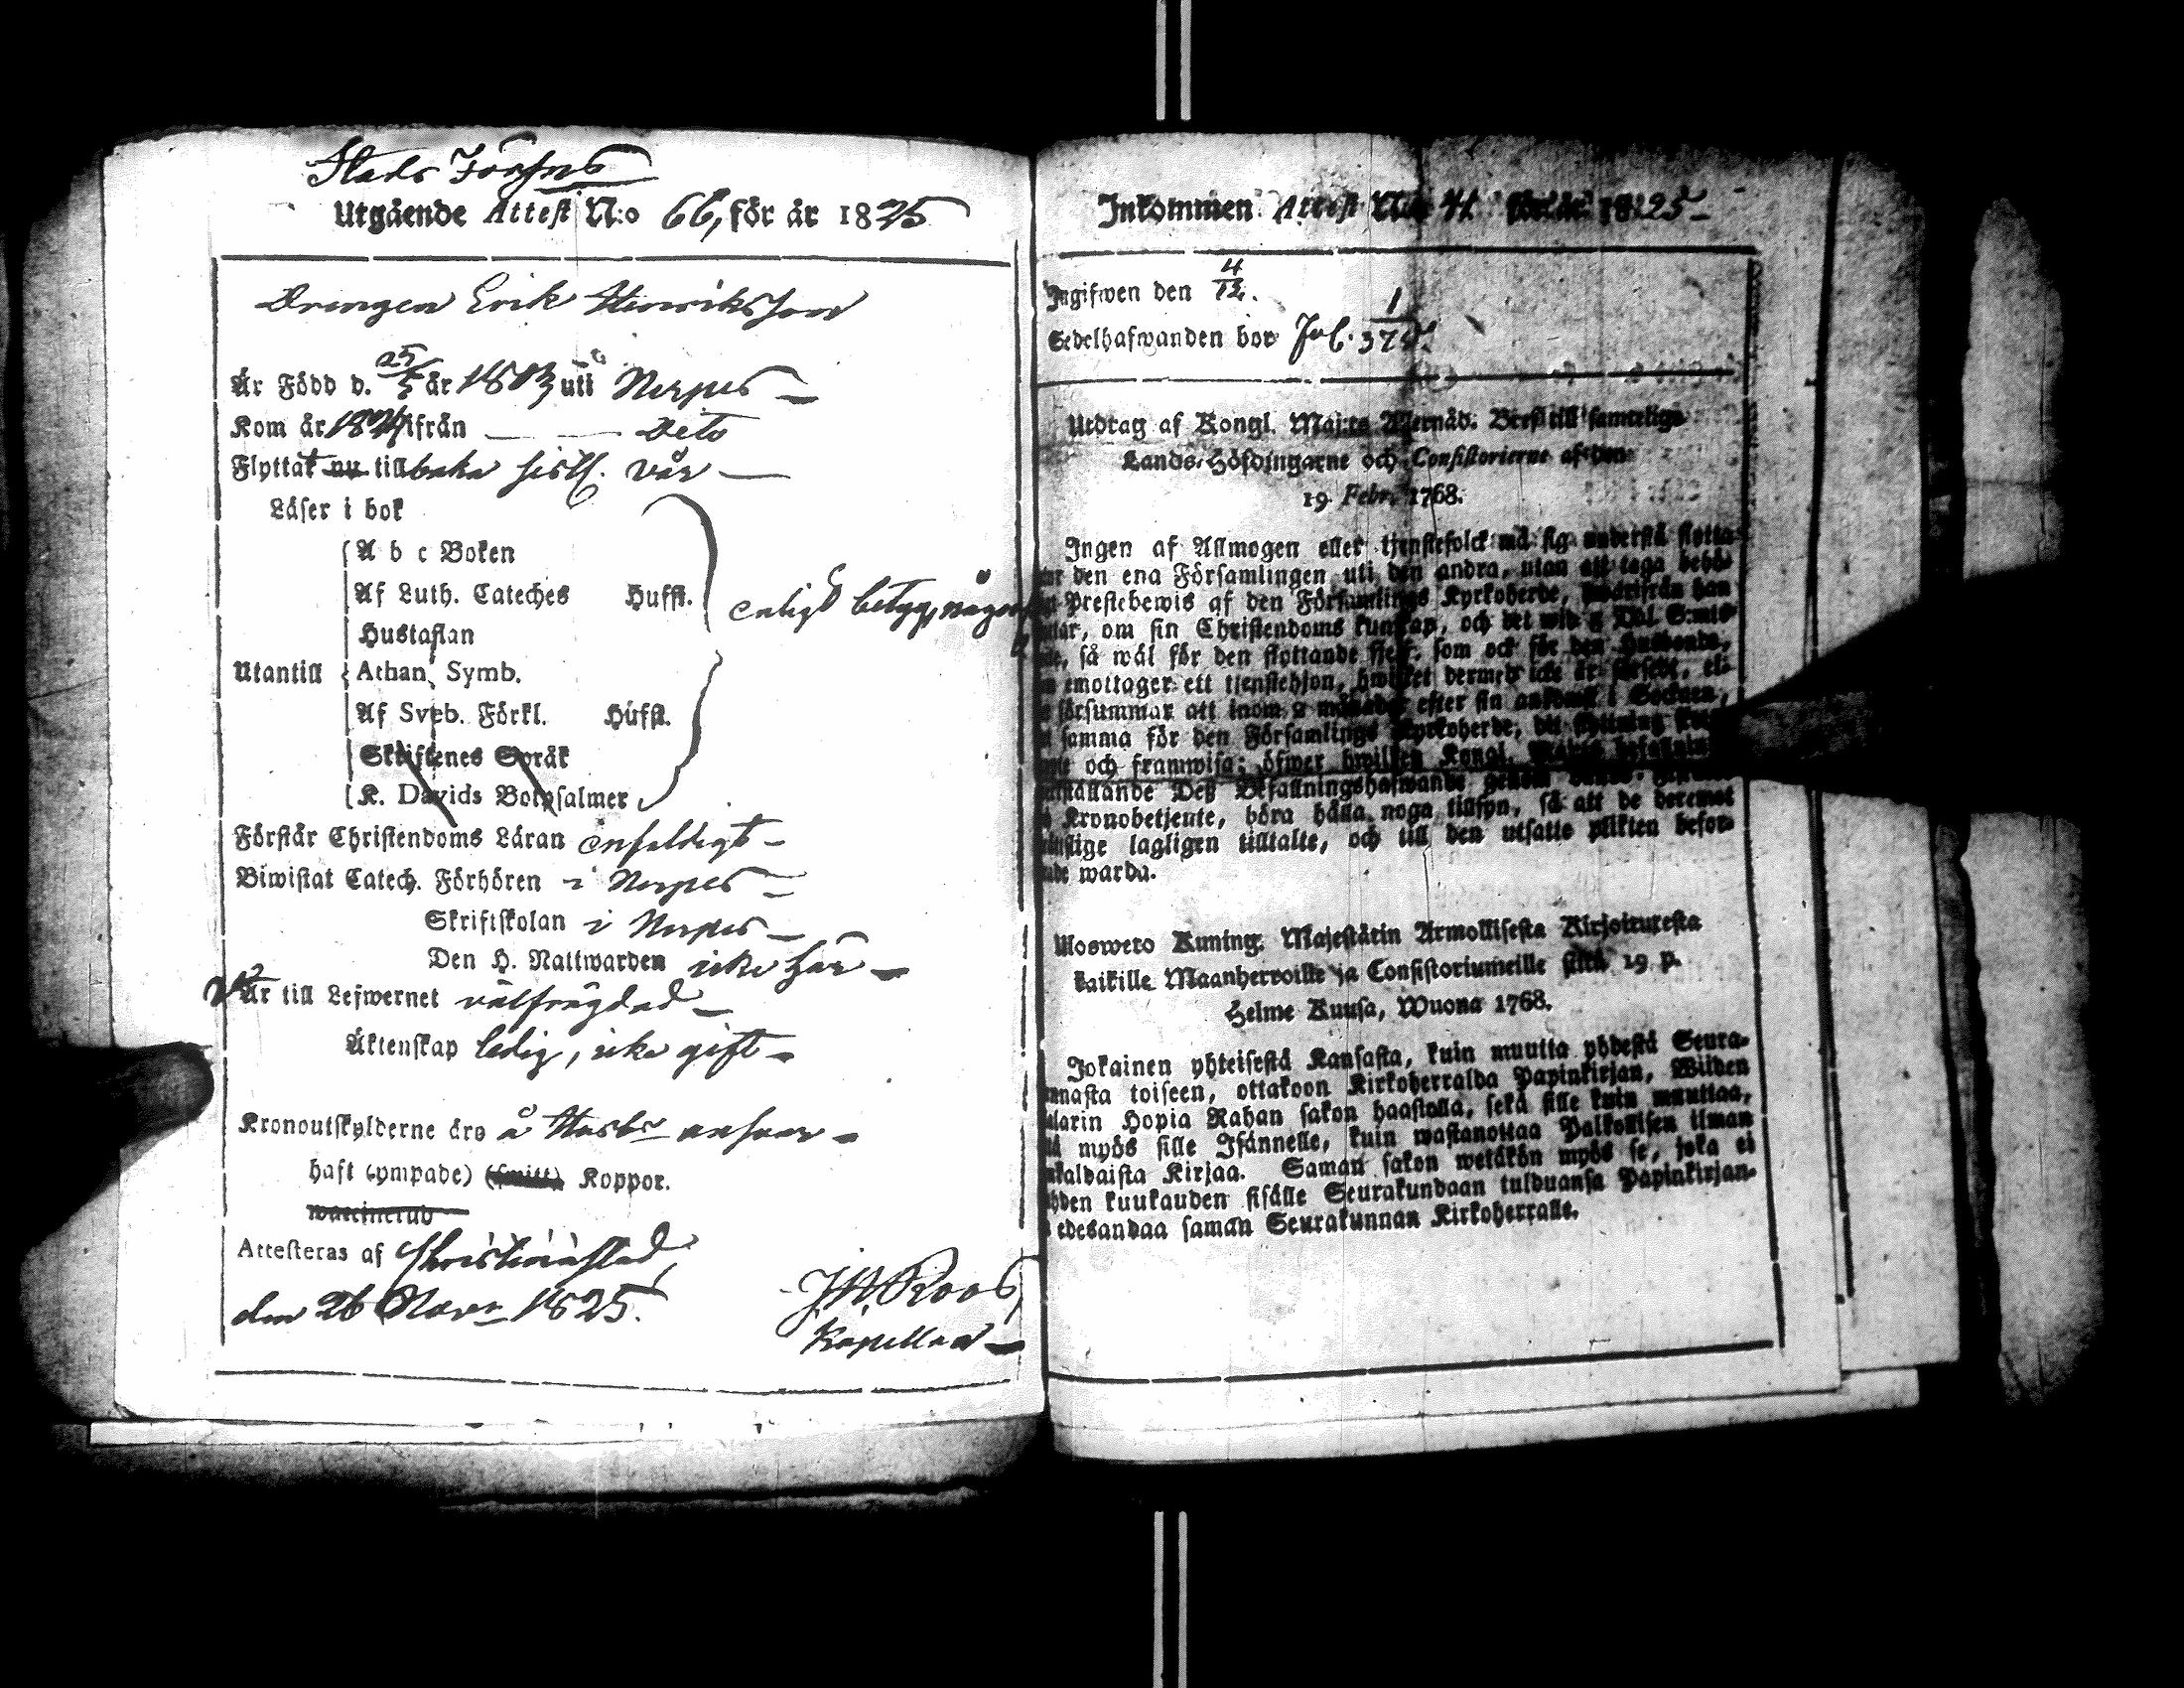 Stads Förs:ns
Utgående Attest N:o 66, för år 1825
Drengen Erik Henriksson
Är Född d. 25/5 år 1803 uti Nerpes
Kom år 1824 ifrån — — Dito
Flyttat nu tillbaka sistl. vår —
Läser i bok
A b c Boken
Af Luth. Cateches Huffl.
enligt betyg, någor
Hustaflan
Utantill Athan. Symb.
Af Sveb. Förkl. Hufft.
Skriftenes Språk
K. Davids Botpsalmer
Förstår Christendoms Läran enfaldigt -
Biwistat Catech. Förhören i Nerpes -
Skriftskolan i Nerpes -
Den H. Nattwarden icke här -
Är till Lefwernet välfrägdad -
Äktenskap ledig, icke gift -
Kronoutskylderne äro å Husb. ansvar -
haft (ympade) (smitt) Koppor.
waccinerad
Attesteras af Christinæstad,
den 26 Novr 1825.
J. W. Roos,
Kapellan
Inkommen Attest N:o 41 för år 1825 -
Ingifwen den 4/12.
Sedelhafwanden bor Fol. 1/375.
Utdrag af Kongl. Maj:ts Allernåd. Bref till samtelige
Lands-Höfdingarne och Consistorierne af den
19 Febr. 1768.
Ingen af Allmogen eller tjenstefolck må sig understå flytta
den ena Församlingen uti den andra, utan att taga behö-
Prestebewis af den Församlings Kyrkoherde, hwarifrån han
om sin Christendoms kunskap, och det wid 2 Dal. S:mts
så wäl för den flyttande sjelf, som ock för den Husbonde,
emottager ett tjenstehjon, hwilket dermed icke är försedt, el-
försummar att inom 2 månader efter sin ankomst i Socknen,
samma för den Församlings Kyrkoherde, dit flyttning sker,
och framwisa; öfwer hwilken Kongl. Maj:ts
Deß Befallningshafwande genom
Kronobetjente, böra hålla noga tillsyn, så att de deremot
lagligen tilltalte, och till den utsatte plikten befor-
warda.
Uloswero Kuning. Majestätin Armollisesta Kirjoituresta
kaikille Maanherroille ja Consistoriumeille siitä 19 p.
Helme Kuusa, Wuona 1768.
Jokainen yhteisestä Kansasta, kuin muutta yhdestä Seura-
nnasta toiseen, ottakoon Kirkoherralda Papinkirjan, Wiiden
alarin Hopia Rahan sakon haastolla, sekä sille kuin muuttaa,
myös sille Isännelle, kuin wastanottaa Palkollisen ilman
Kirjaa. Saman sakon wetäkön myös se, joka ei
hden kuukauden sisälle Seurakundaan tulduansa Papinkirjan-
edesandaa saman Seurakunnan Kirkoherralle.